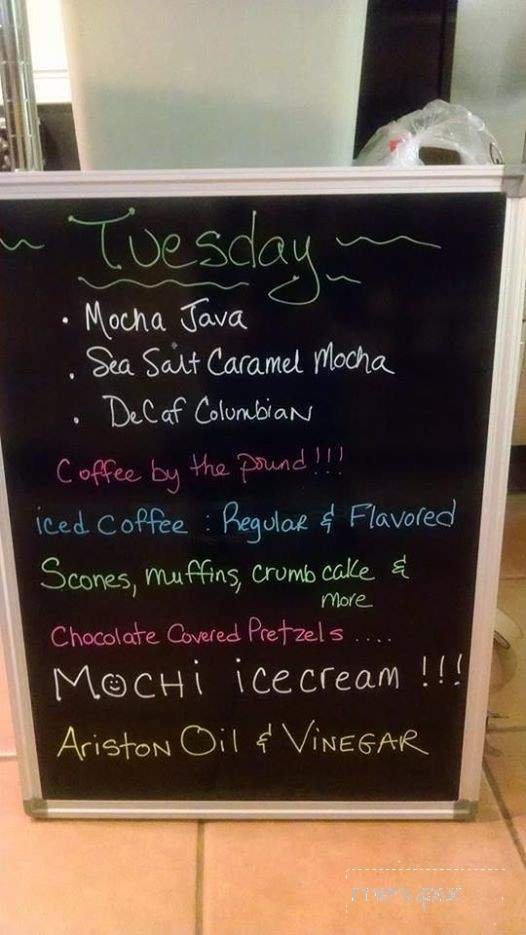 Tuesday
• Mocha Java
• Sea Salt Caramel Mocha
• DeCaf Columbian
Coffee by the pound!!!
iced coffee : Regular & Flavored
Scones, muffins, crumb cake &
more
Chocolate Covered Pretzels ....
MOCHi icecream !!!
Ariston Oil & VINEGAR